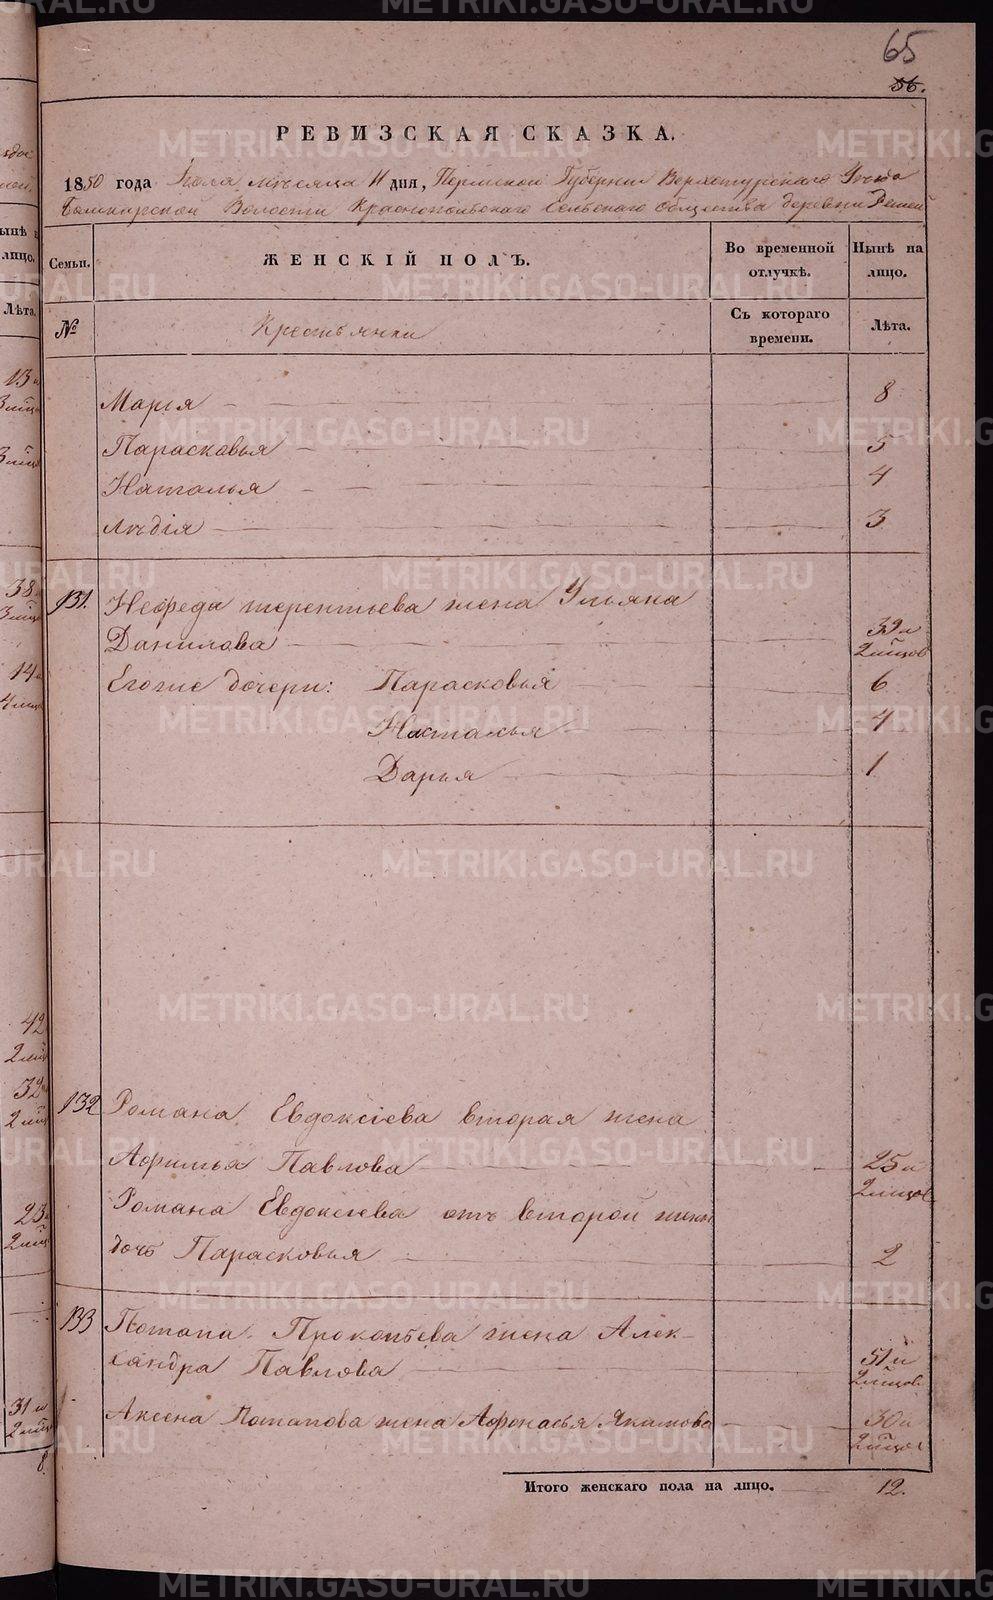 65
56.
РЕВИЗСКАЯ СКАЗКА.
1850 года Июля месяца 11 дня, Пермской Губернии Верхотурского Уезда
Башкарской Волости Краснопольского Сельского Общества деревни
Семьи.
ЖЕНСКІЙ ПОЛЪ.
Во временной отлучкѣ.
Нынѣ на лицо.
№
Крестьянки
Съ котораго времени.
Лѣта.
Марья 8
Парасковья 5
Наталья 4
Лидія 3
131. Нефеда терентьева жена Ульяна
Данилова 39 л 2 мцов
Егоже дочери: Парасковья 6
Наталья 4
Дарья 1
132 Романа Евдокеіева вторая жена
Афимья Павлова 25 л 2 мцов
Романа Евдокеіева отъ второй жены
дочь Парасковья 2
133 Потапа Прокопьева жена Алек-
сандра Павлова 51 л 2 мцов
Аксена Потапова жена Афонасья Якимова 30 л 2 мцов
Итого женскаго пола на лицо. 12.
ынѣ
лицо.
Лѣта.
13
38
14
42
32
23
31 л
8.
METRIKI.GASO-URAL.RU